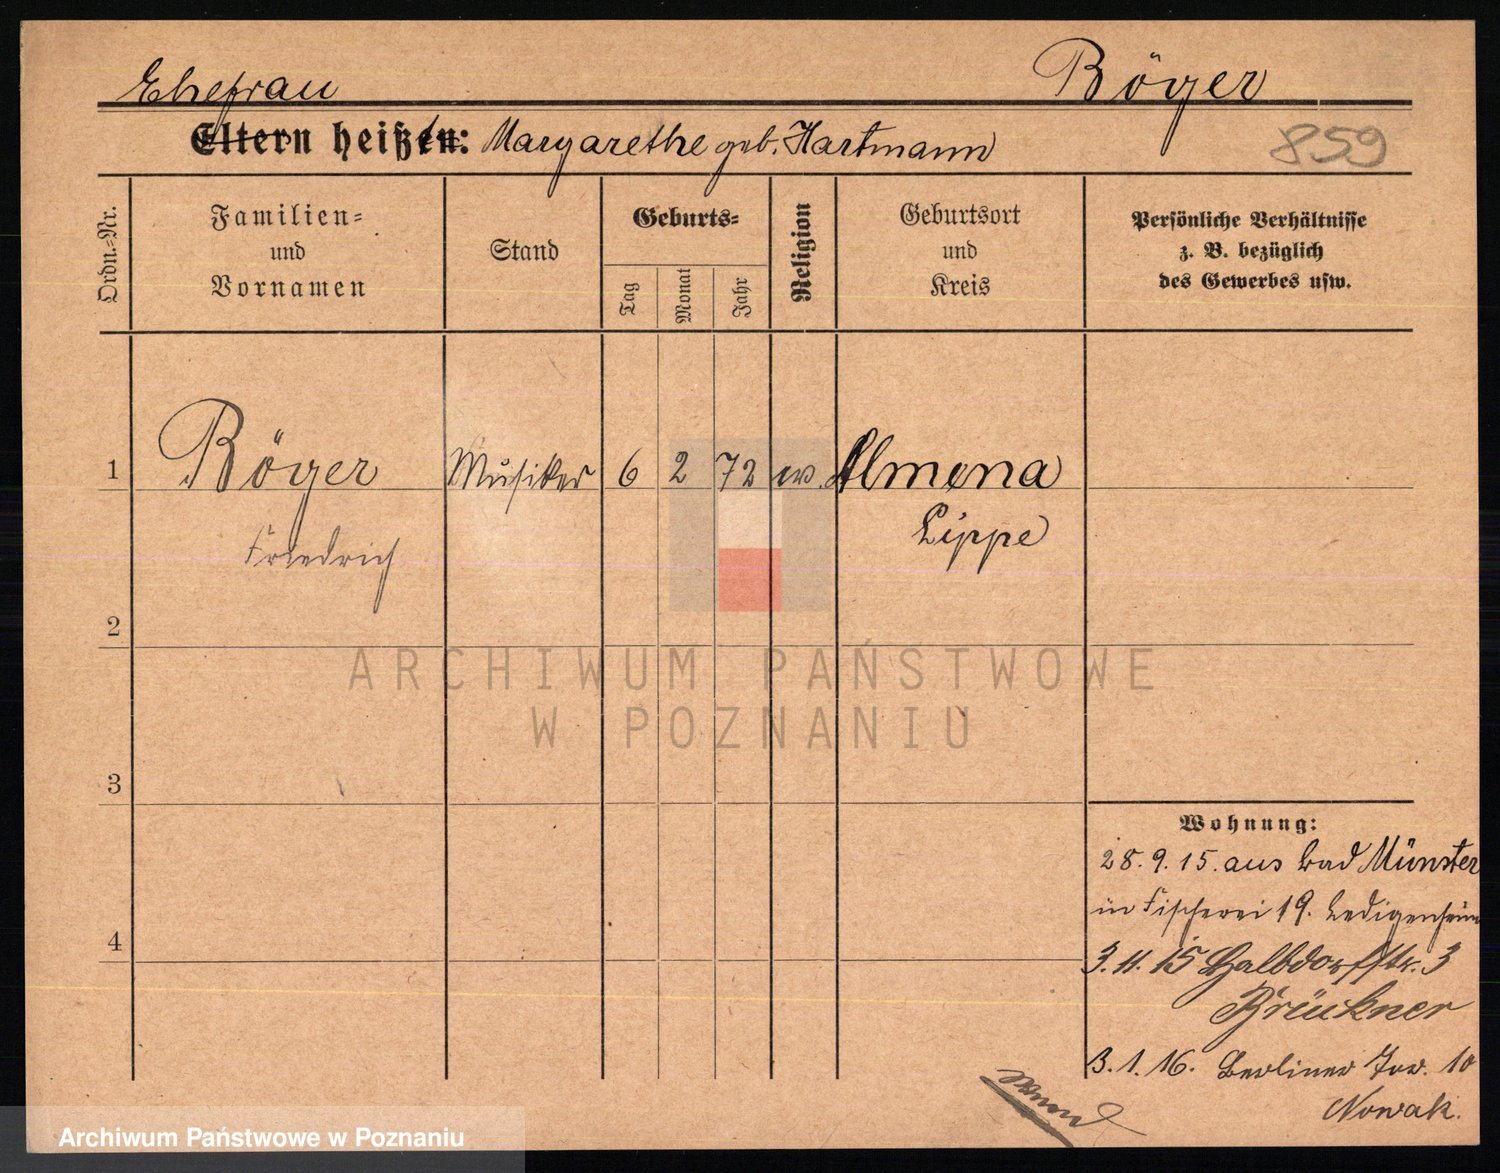 Ehefrau
Böger
Eltern heißen: Margarethe geb. Hartmann
859
Ordn.-Nr.
Familien-
und
Vornamen
Stand
Geburts-
Tag
Monat
Jahr
Religion
Geburtsort
und
Kreis
Persönliche Verhältnisse
z. B. bezüglich
des Gewerbes usw.
1
Böger
Musiker
6
2
72
ev.
Almena
Lippe
Friedrich
2
3
4
Wohnung:
28. 9. 15. aus Bad Münster
in Fischerei 19. Ledigenheim
3. 11. 15 Halbdorfstr. 3
Brückner
3. 1. 16. Berliner Tor. 10
Nowak.
ARCHIWUM PAŃSTWOWE
W POZNANIU
Archiwum Państwowe w Poznaniu